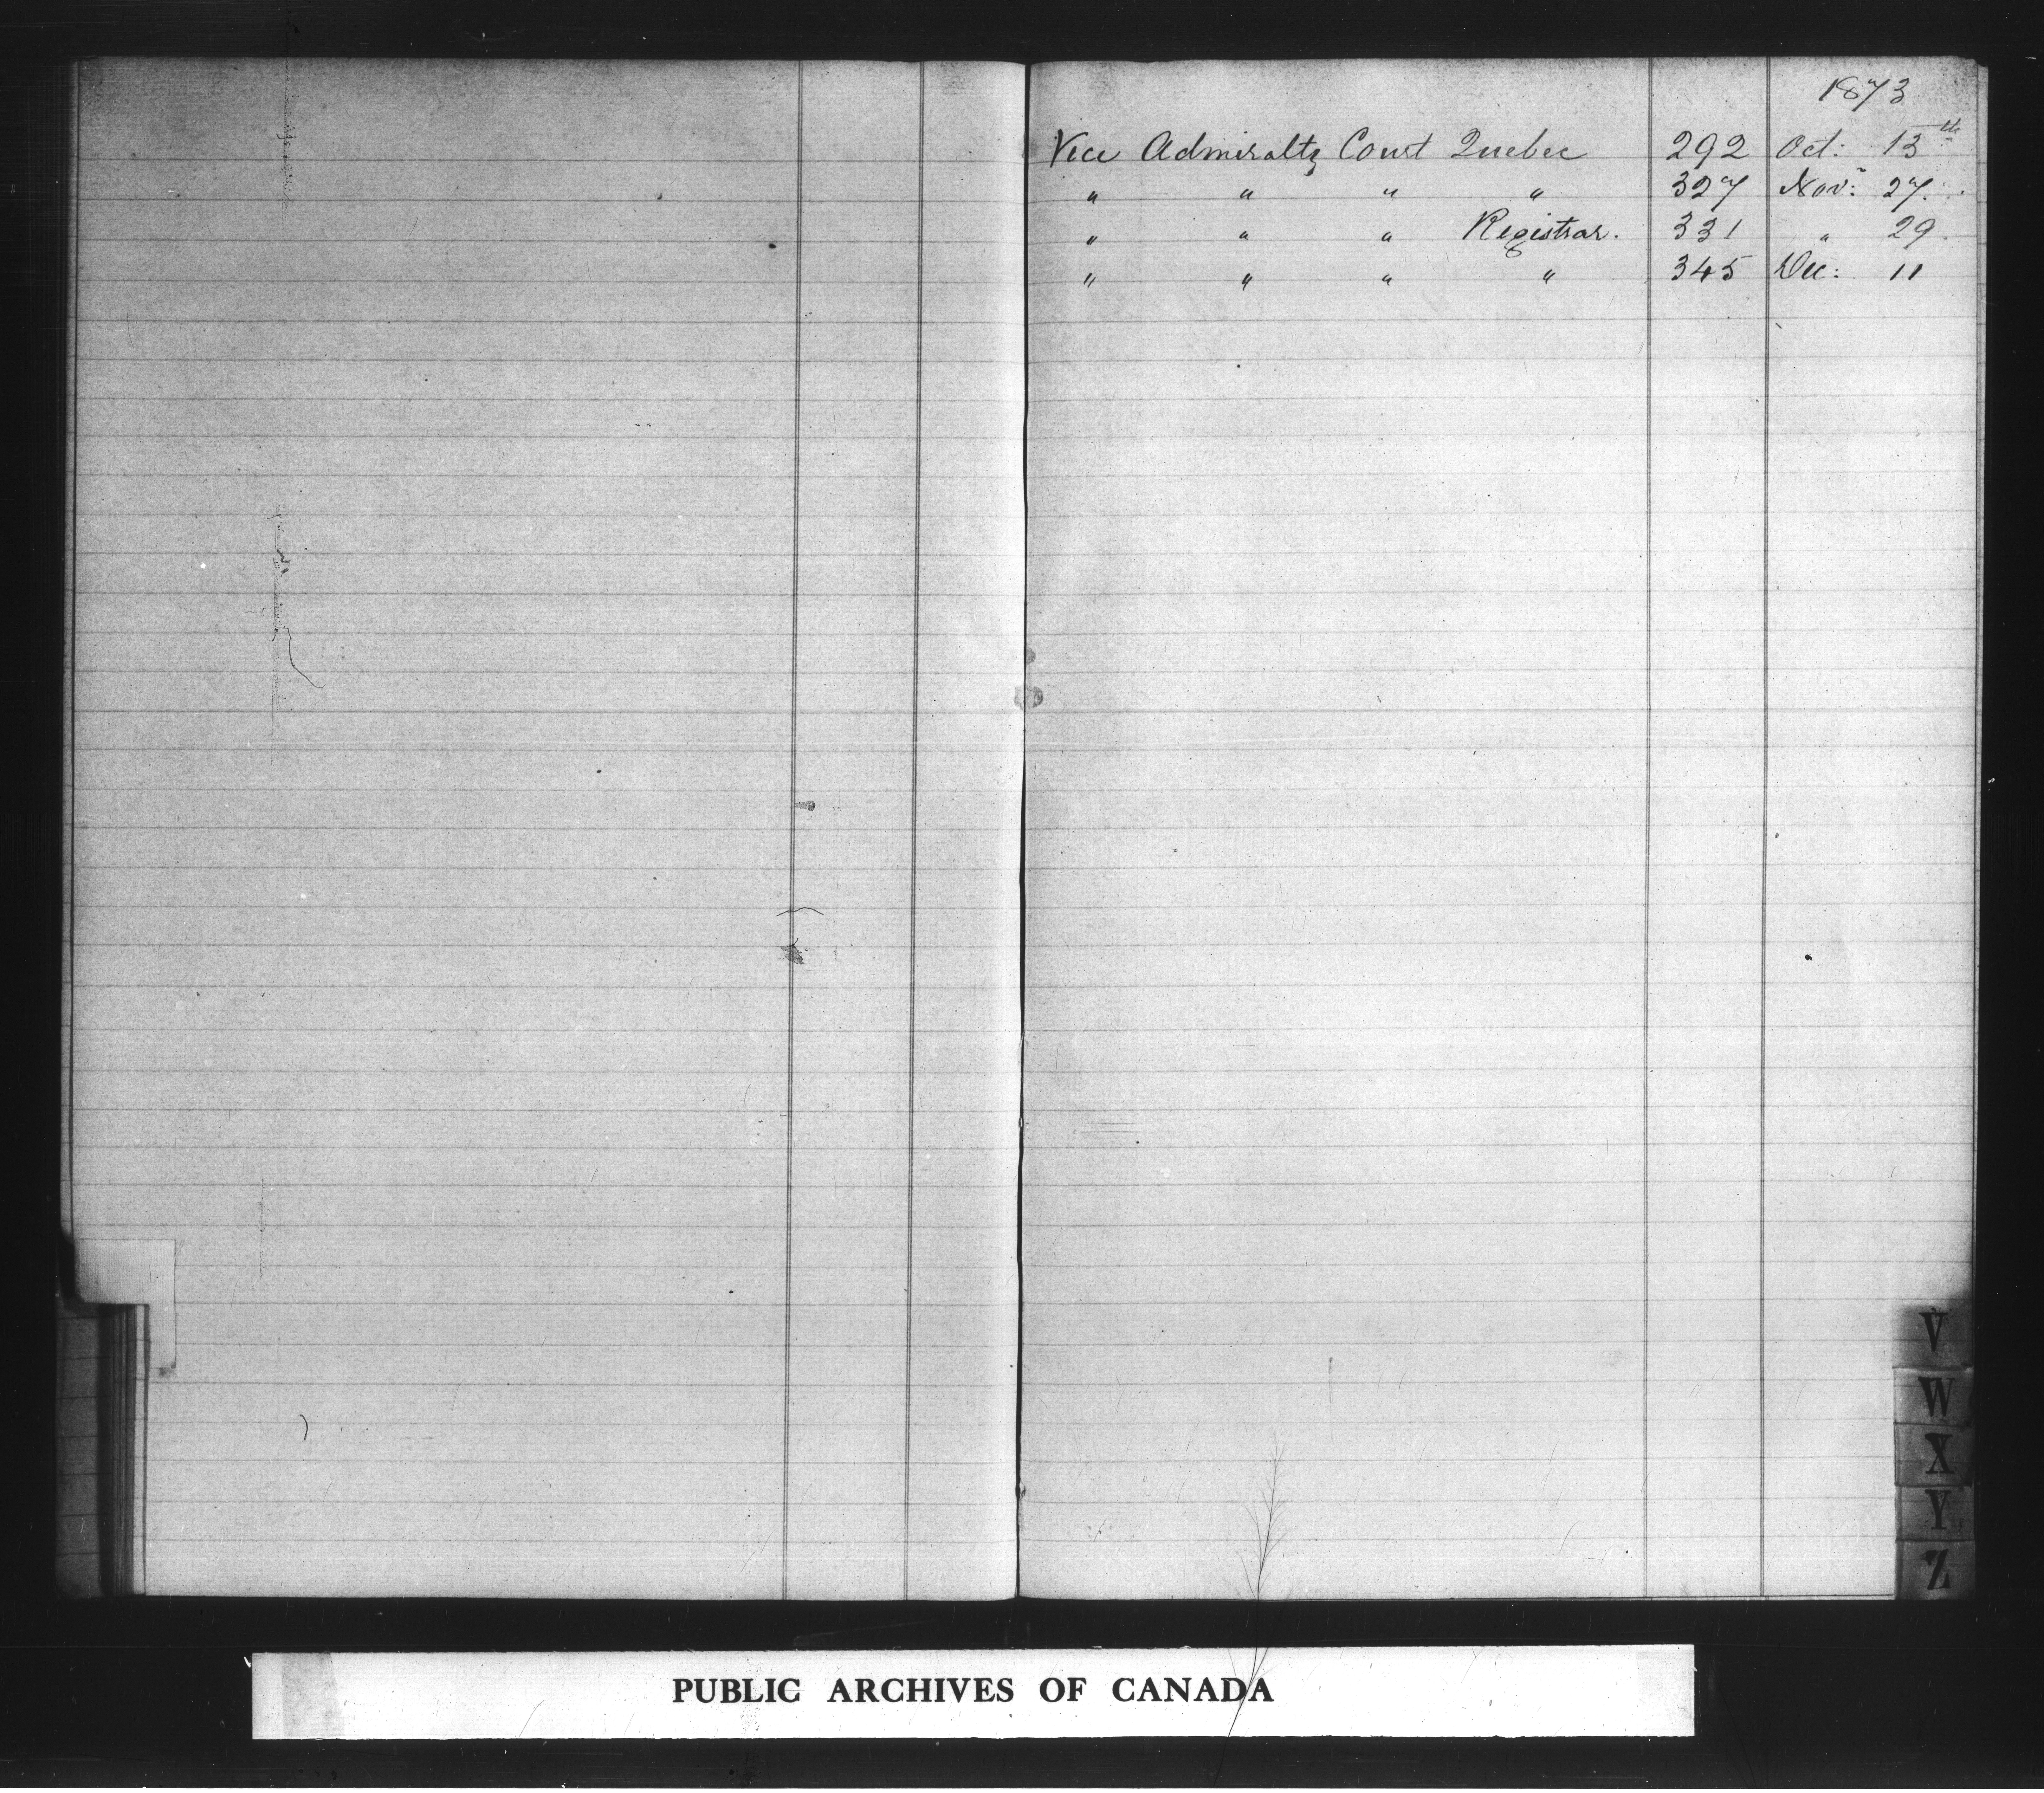 1873
Vice Admiralty Court Quebec 292 Oct: 13th
" " " " 327 Nov: 27.
" " " Registrar. 331 " 29.
" " " " 345 Dec: 11
V
W
X
Y
Z
PUBLIC ARCHIVES OF CANADA